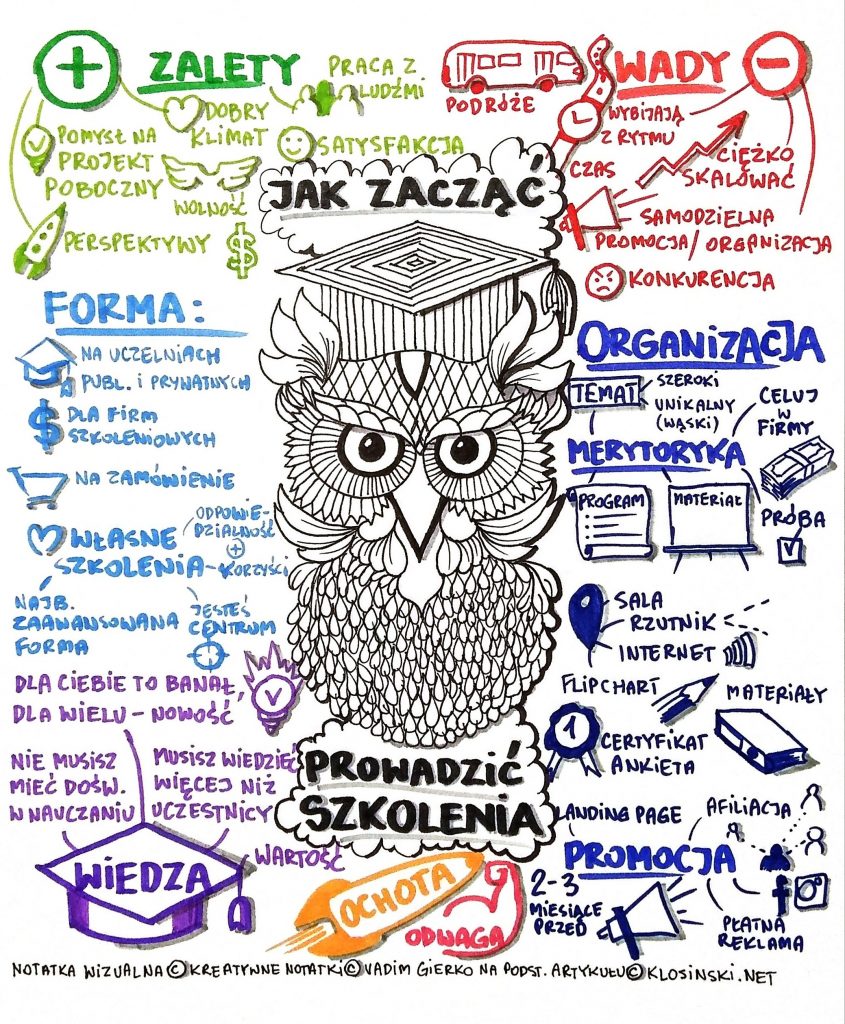 + ZALETY
PRACA Z
LUDŹMI
DOBRY
KLIMAT
SATYSFAKCJA
POMYSŁ NA
PROJEKT
POBOCZNY
WOLNOŚĆ
PERSPEKTYWY
$
WADY -
PODRÓŻE
WYBIJAJĄ
Z RYTMU
CZAS
CIĘŻKO
SKALOWAĆ
SAMODZIELNA
PROMOCJA/ORGANIZACJA
KONKURENCJA
JAK ZACZĄĆ
FORMA:
NA UCZELNIACH
PUBL. I PRYWATNYCH
$ DLA FIRM
SZKOLENIOWYCH
NA ZAMÓWIENIE
WŁASNE
SZKOLENIA-
ODPOWIE-
DZIALNOŚĆ
+
KORZYŚCI
NAJB.
ZAAWANSOWANA
FORMA
JESTEŚ
CENTRUM
ORGANIZACJA
TEMAT
SZEROKI
UNIKALNY
(WĄSKI)
CELUJ
W
FIRMY
MERYTORYKA
PROGRAM
MATERIAŁ
PRÓBA
SALA
RZUTNIK
INTERNET
FLIPCHART
MATERIAŁY
1
CERTYFIKAT
ANKIETA
DLA CIEBIE TO BANAŁ,
DLA WIELU – NOWOŚĆ
NIE MUSISZ
MIEĆ DOŚW.
W NAUCZANIU
MUSISZ WIEDZIEĆ
WIĘCEJ NIŻ
UCZESTNICY
WIEDZA
WARTOŚĆ
PROWADZIĆ
SZKOLENIA
OCHOTA
ODWAGA
LANDING PAGE
AFILIACJA
PROMOCJA
2-3
MIESIĄCE
PRZED
f
PŁATNA
REKLAMA
NOTATKA WIZUALNA © KREATYWNE NOTATKI © VADIM GIERKO NA PODST. ARTYKUŁU © KLOSINSKI.NET